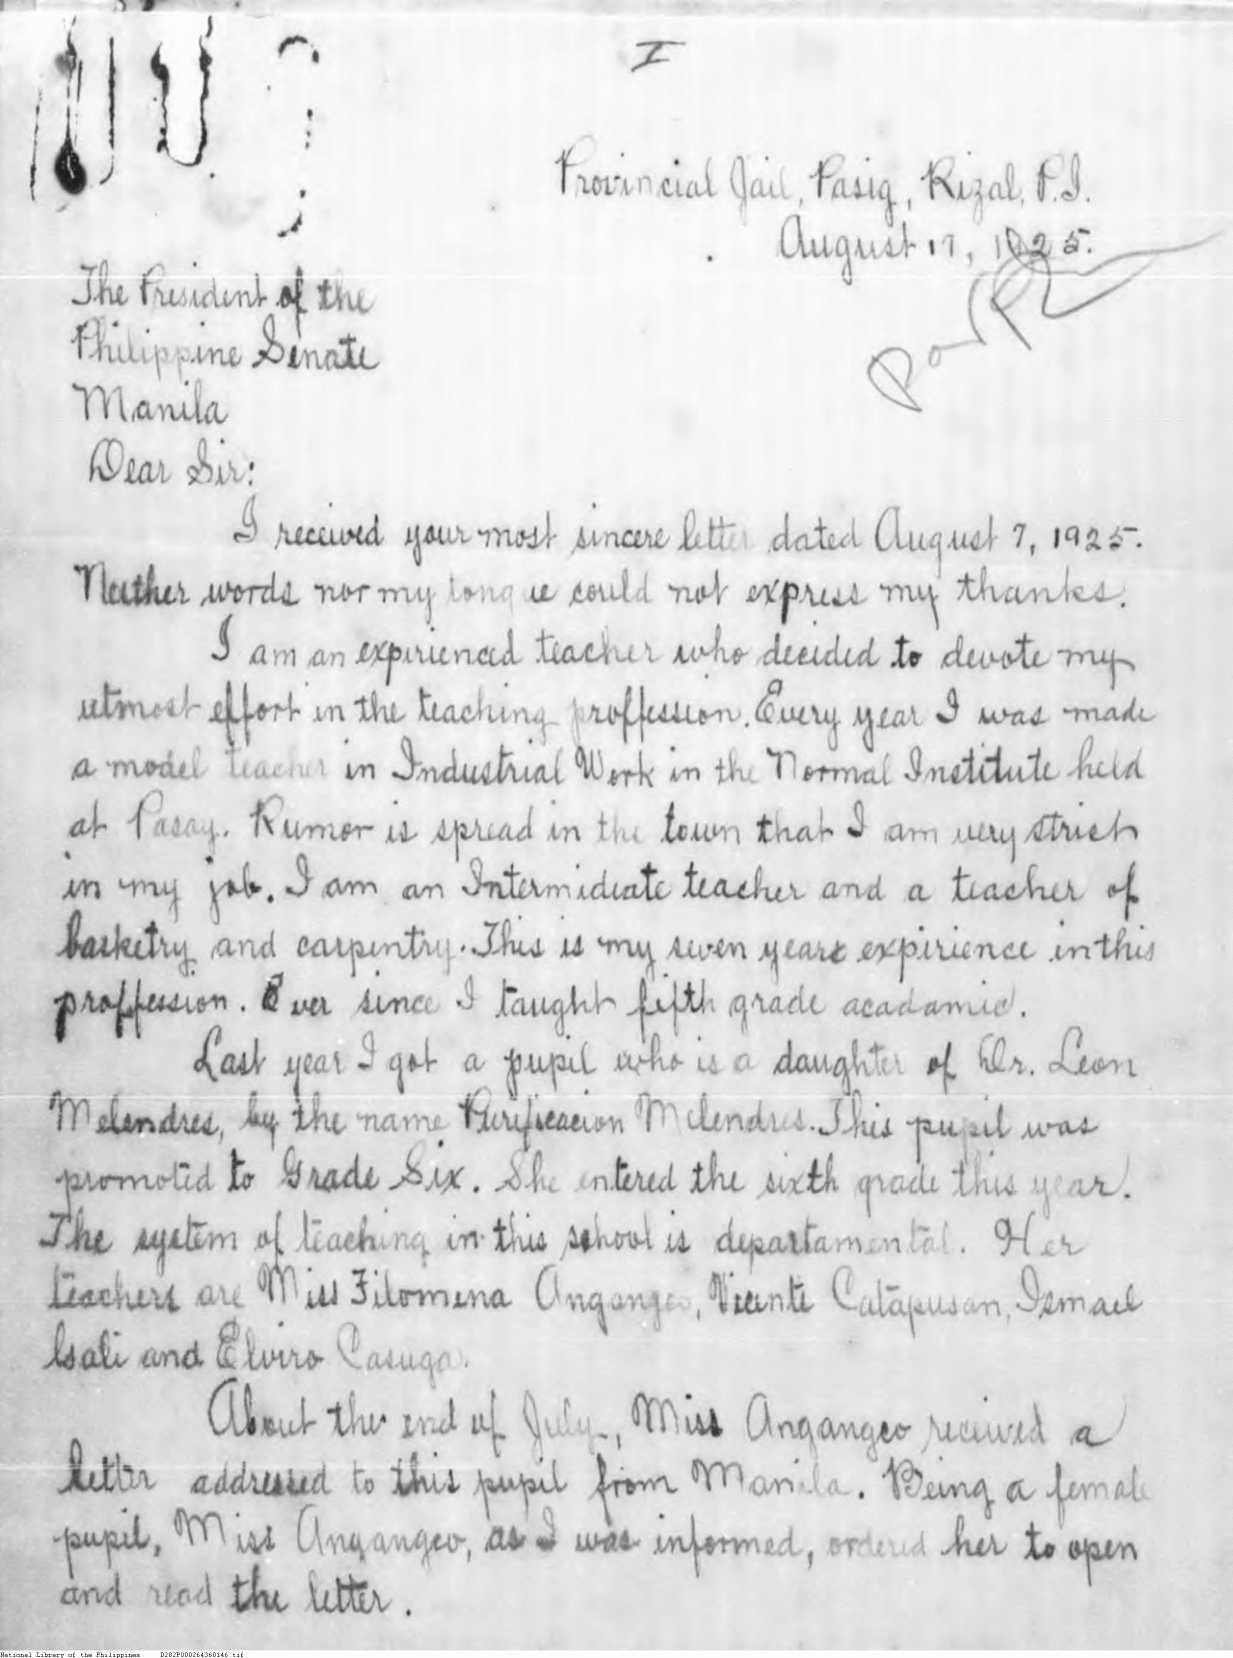 I
Provincial Jail, Pasig, Rizal, P.I.
August 17, 1925.
The President of the
Philippine Senate
Manila
Dear Sir:
I received your most sincere letter dated August 7, 1925.
Neither words nor my tongue could not express my thanks.
I am an expirienced teacher who decided to devote my
utmost effort in the teaching proffession. Every year I was made
a model teacher in Industrial Work in the Normal Institute held
at Pasay. Rumor is spread in the town that I am very strict
in my job. I am an Intermidiate teacher and a teacher of
basketry and carpentry. This is my seven years expirience in this
proffession. Ever since I taught fifth grade acadamic.
Last year I got a pupil who is a daughter of Dr. Leon
Melendres, by the name Purificacion Melendres. This pupil was
promoted to Grade Six. She entered the sixth grade this year.
The system of teaching in this school is departamental. Her
teachers are Miss Filomena Angangco, Vicente Catapusan, Ismael
Gali and Elviro Casuga.
About the end of July, Miss Angangco received a
letter addressed to this pupil from Manila. Being a female
pupil, Miss Angangco, as I was informed, ordered her to open
and read the letter.
National Library of the Philippines D282P000264360146.tif